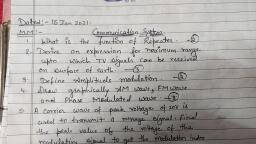 Dated :- 15 Jan 2021
MM :- Communication System
1. What is the function of Repeater -②
2. Derive an expression for maximum range
upto which TV signals can be received
on surface of earth -③
3. Define Amplitude modulation -②
4. Draw graphically AM wave, FM wave
and Phase Modulated wave -③
5. A carrier wave of peak voltage of 20V is
used to transmit a message signal. Find
the peak value of the voltage of the
modulating signal to get the modulation index